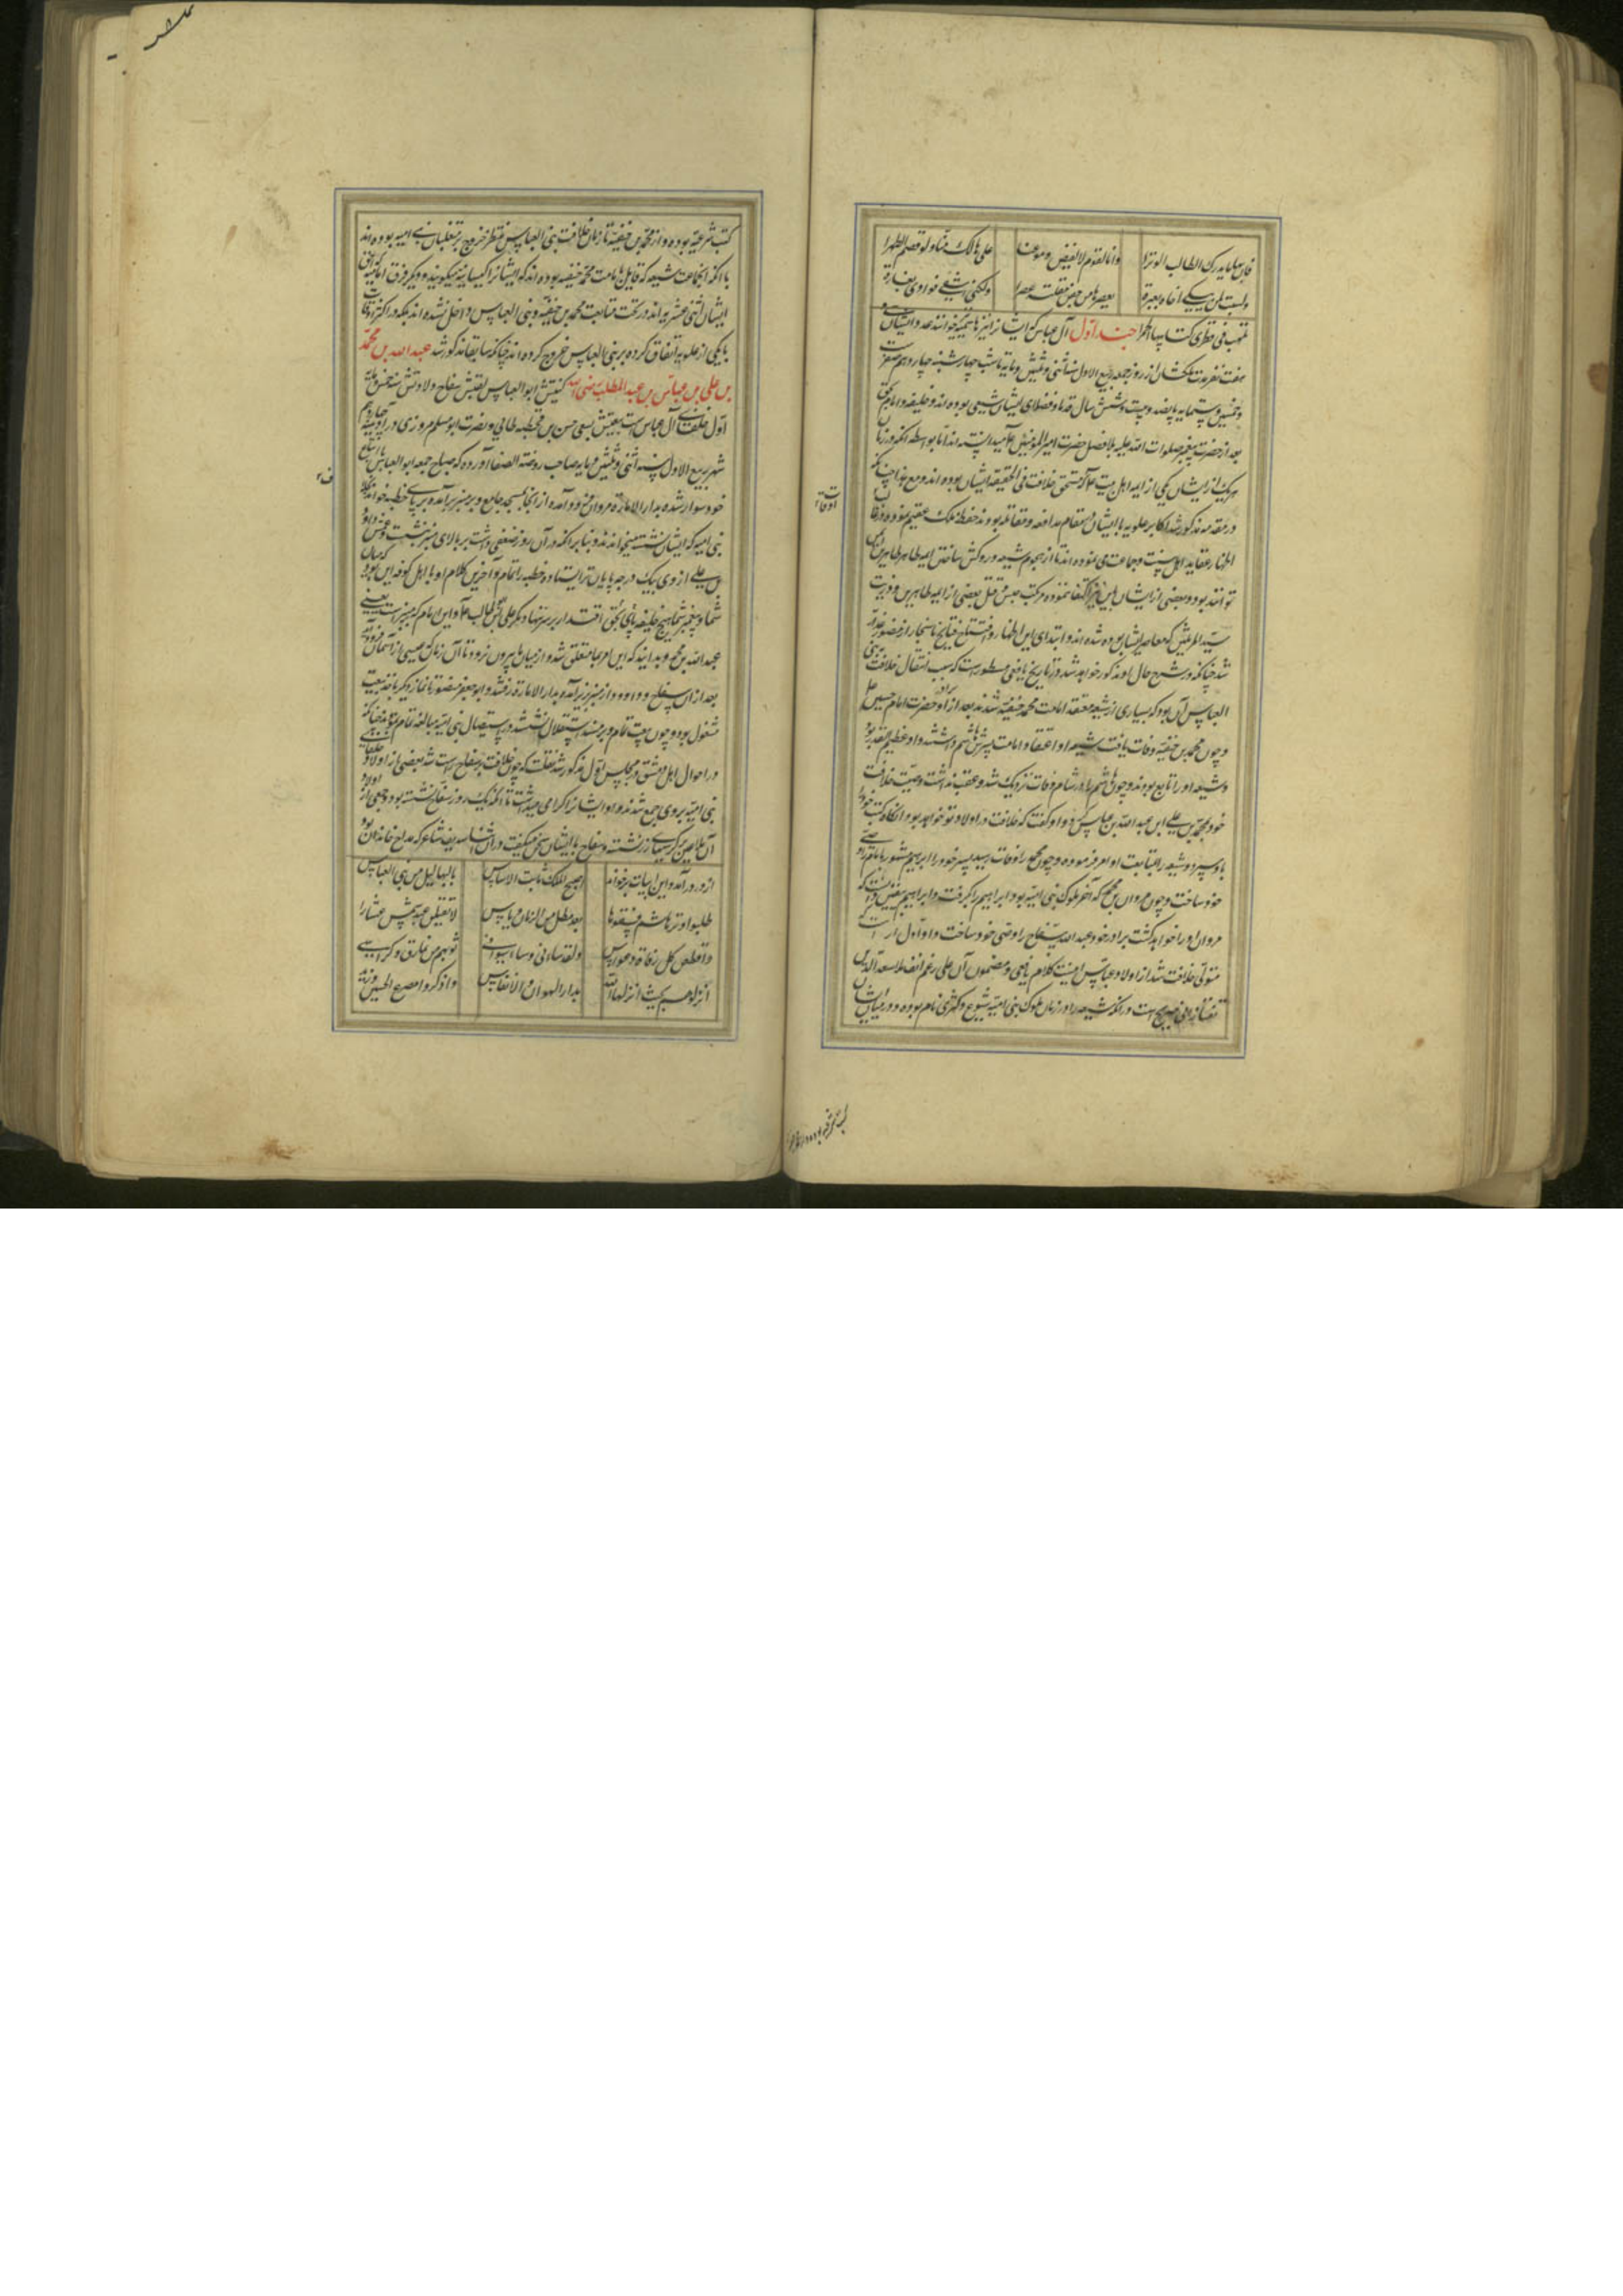 فان بها ما یدرک الطالب الوترا وانا لقوم لا تفیض دموعنا علی هالک منا ولو قصم الظهرا
ولست کمن یبکی اخاه بعبرة یعصرها من جفن مقلته عصرا ولکننی اشفی فوادی بغارة
تلهب فی قطری کتایبها جمرا جند اول آل عباس که ایشان را نیز هاشمیه خوانند عدد ایشان سی و
هفت نفر مدت ملکشان از روز جمعه ربیع الاول سنه اثنی و ثلثین و مایه تا شب چهارشنبه چهاردهم صفر ست
و خمسین و ستمایه پانصد و بیست و شش سال قدما و فضلای ایشان شیعی بوده اند و خلیفه و امام بحق
بعد از حضرت پیغمبر صلوات الله علیه بلافصل حضرت امیر المؤمنین علی را میدانسته اند اما بواسطه آنکه در زمان
هر یک از ایشان یکی از ایمه اهل بیت که مستحق خلافت فی الحقیقه ایشان بوده اند و مع هذا چنانکه
در مقدمه مذکور شد اکابر علویه با ایشان در مقام مدافعه و مقاتله بودند حفظا لملک عقیم نموده در
اظهار عقاید اهل سنت و جماعت می نموده اند تا از هجوم شیعه و روکش ساختن ایمه طاهرین ایمن
توانند بود و بعضی از ایشان باین نیز اکتفا ننموده مرتکب حبس و قتل بعضی از ایمه طاهرین و ذریت
سید المرسلین که معاصر ایشان بوده شده اند و ابتدای این اظهار و افتتاح قبایح ناهنجار از منصور
شد چنانکه در شرح حال او مذکور خواهد شد و در تاریخ یافعی مسطور است که سبب انتقال خلافت به بنی
العباس آن بود که بسیاری از شیعه معتقد امامت محمد حنفیه شدند بعد از برادر او حضرت امام حسین
و چون محمد بن حنفیه وفات یافت شیعه او اعتقاد امامت پسرش ابوهاشم داشتند و او عظیم القدر بود
و شیعه او را تابع بودند و چون ابوهاشم را در شام وفات نزدیک شد و عقب نداشت وصیت خلافت
خود بمحمد بن علی ابن عبد الله بن عباس کرد و او گفت که خلافت در اولاد تو خواهد بود آنگاه کتب خود را
باو سپرد و شیعه را بمتابعت او امر فرموده و چون محمد را وفات رسید پسر خود را ابراهیم مشهور بامام وصی
خود ساخت و چون مروان بن محمد که آخر ملوک بنی امیه بود ابراهیم را بگرفت و ابراهیم یقین دانست که
مروان او را خواهد کشت برادر خود عبد الله سفاح را وصی خود ساخت و او اول
متولی خلافت شد از اولاد عباس اینست کلام یافعی و مضمون آن علی رغم انف ملا سعد الدین
تفتازانی صریح است در آنکه شیعه را در زمان ملوک بنی امیه شیوع و کثرتی تمام بوده و در میان ایشان
کتب شرعیه بوده و از محمد بن حنفیه تا زمان خلافت بنی العباس منتظر خروج بر متغلبان بنی امیه بوده اند
با آنکه آنجماعت شیعه که قایل بامامت محمد حنفیه بوده اند که ایشان را کیسانیه میگویند و دیگر فرق امامیه که
ایشان اثنی عشریه اند در تحت متابعت محمد بن حنفیه و بنی العباس داخل نشده اند بلکه در اکثر اوقات
با یکی از علویه اتفاق کرده بر بنی العباس خروج کرده اند چنانکه سابقا مذکور شد عبد الله بن محمد
بن علی بن عباس بن عبد المطلب رضی الله کنیتش ابو العباس لقبش سفاح ولادتش سنه خمس و مایه
اول خلفای آل عباس است بیعتش بسعی حسن بن قحطبه طائی و نصرت ابو مسلم مروزی در آدینه چهاردهم
شهر ربیع الاول سنه اثنی و ثلثین و مایه صاحب روضة الصفا آورده که صباح جمعه ابو العباس با اتباع
خود سوار شده بدار الاماره مروان فرود آمد و از آنجا بمسجد جامع و بر منبر برآمده بر پای خطبه خواند
بنی امیه که ایشان نشسته میخواندند و بنا بر آنکه در آن روز ضعفی داشت بر بالای منبر نشست و عمش داود
بن علی از وی بیک درجه پایان تر ایستاده خطبه را تمام و آخرین کلام او با اهل کوفه این بود که میان
شما و پیغمبر شما هیچ خلیفه پای بحق اقتدار بر سر ننهاد مگر علی بن ابی طالب و این امام که بر منبر است یعنی
عبد الله بن محمد و بدانید که این امر بما متعلق شد و از میان ما بیرون نرود تا آن زمان که عیسی از آسمان فرود آید
بعد از آن سفاح و داود از منبر زیر آمده بدار الاماره رفتند و ابو جعفر منصور تا نماز دیگر باخذ بیعت
مشغول بود و چون بیعت تمام و بر مسند استقلال نشستند در استیصال بنی امیه مبالغه تمام نمودند چنانکه
در احوال اهل دمشق در مجلس اول مذکور شد نقلست که چون خلافت بر سفاح راست شد بعضی از اولاد و خلفای
بنی امیه بر وی جمع شدند و او ایشان را گرامی میداشت تا آنکه یک روز سفاح نشسته بود و جمعی از اولاد
آن ملاعین بر کرسیهای زر نشسته و سفاح با ایشان سخن میگفت در آن اثنا سدیف شاعر که مداح خاندان بود
از در درآمد و این ابیات برخواند اصبح الملک ثابت الاساس بالبهالیل من بنی العباس
طلبوا وتر هاشم فشفوها بعد میل من الزمان و یاس لا تقیلن عبد شمس عثارا
واقطعن کل رقلة و غراس ولقد ساءنی وساء سوائی قربهم من نمارق و کراسی
انزلوها بحیث انزلها الله بدار الهوان والاتعاس واذکروا مصرع الحسین وزید